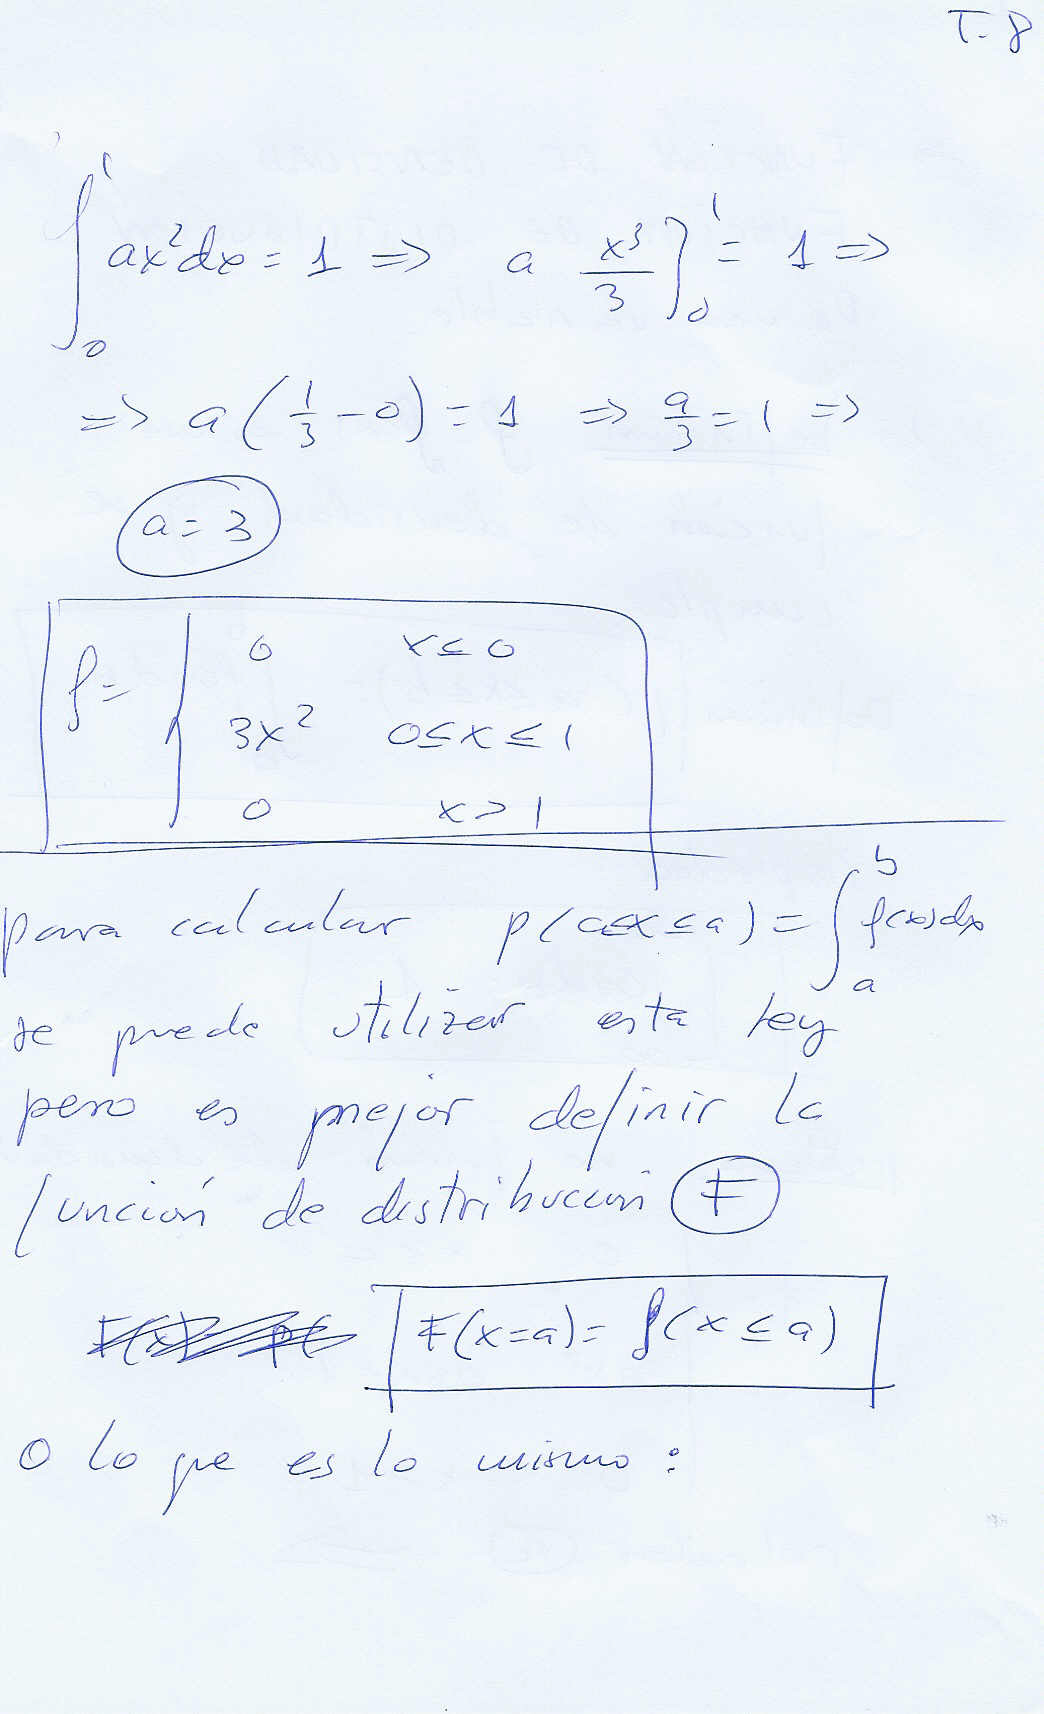 T. 8
∫₀¹ ax²dx = 1 => a x³/3 ]₀¹ = 1 =>
=> a (1/3 - 0) = 1 => a/3 = 1 =>
a = 3
f = { 0 x ≤ 0
3x² 0 ≤ x ≤ 1
0 x > 1
para calcular p(a≤x≤a) = ∫ₐᵇ f(x)dx
se puede utilizar esta ley
pero es mejor definir la
función de distribucion F
F(x=a) = p(x ≤ a)
o lo que es lo mismo :